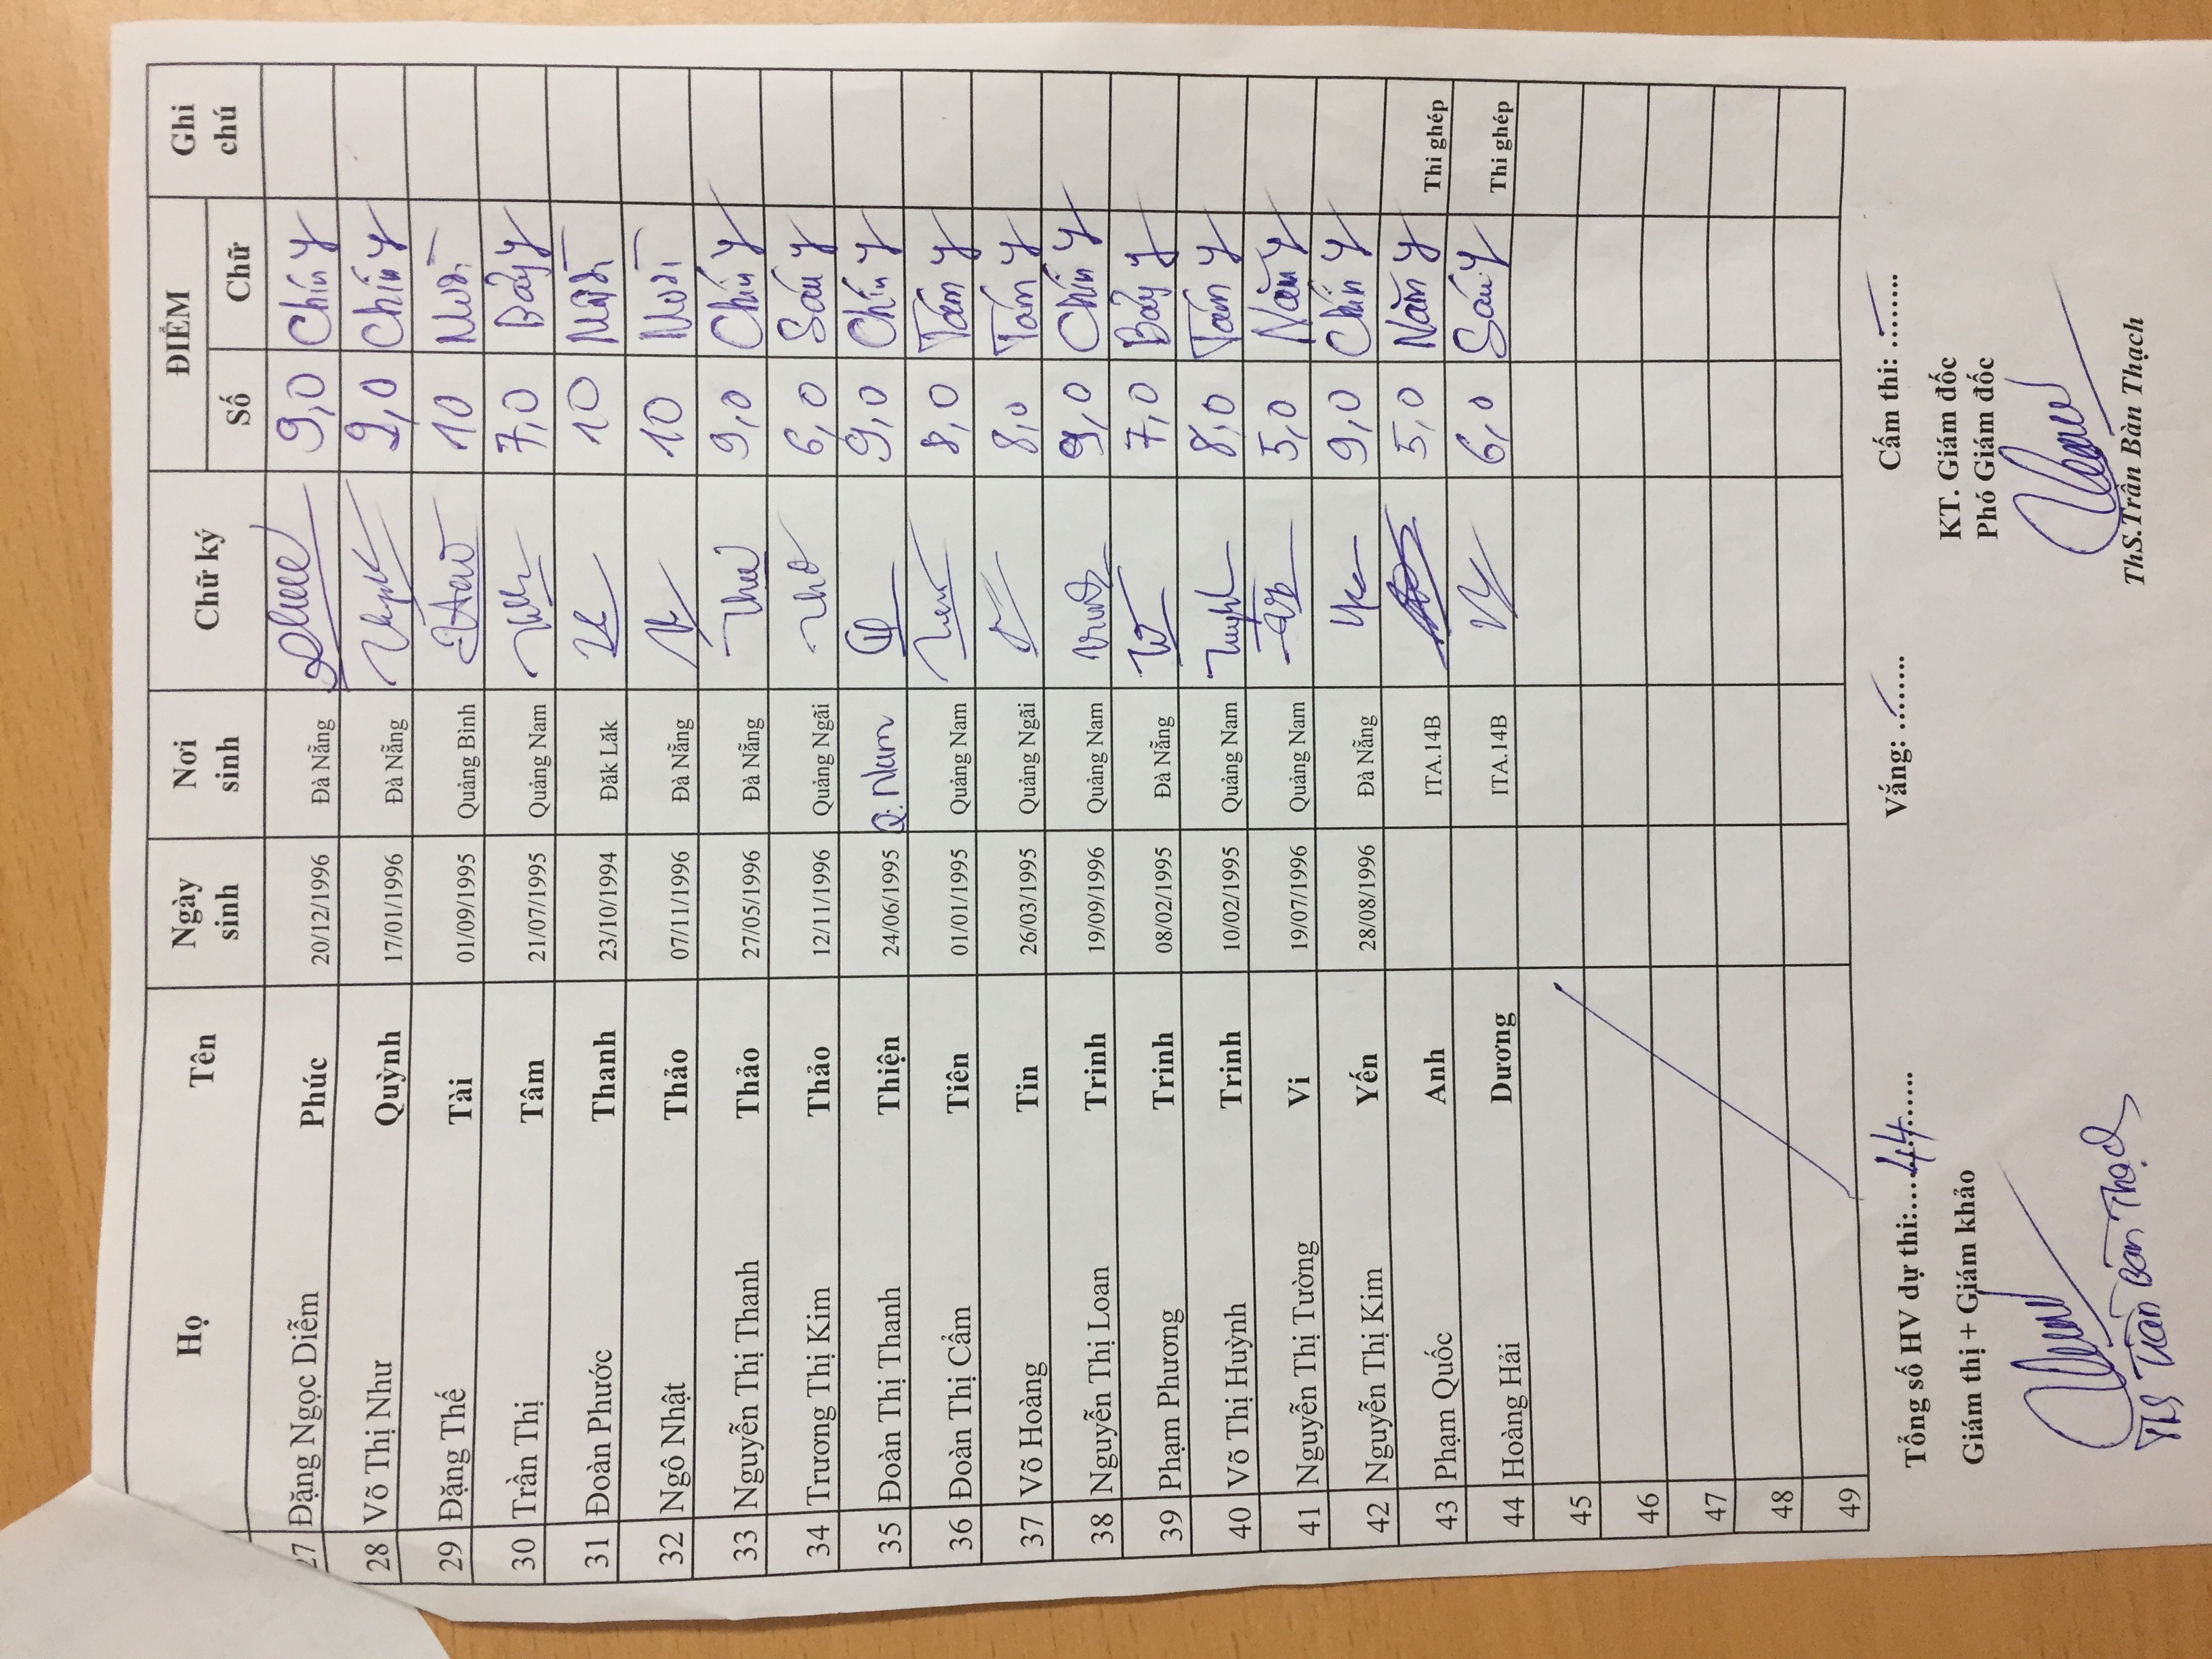 Họ Tên Ngày sinh Nơi sinh Chữ ký ĐIỂM Ghi chú
Số Chữ
27 Đặng Ngọc Diễm Phúc 20/12/1996 Đà Nẵng 9,0 Chín y
28 Võ Thị Như Quỳnh 17/01/1996 Đà Nẵng 9,0 Chín y
29 Đặng Thế Tài 01/09/1995 Quảng Bình 10 Mười
30 Trần Thị Tâm 21/07/1995 Quảng Nam 7,0 Bảy y
31 Đoàn Phước Thanh 23/10/1994 Đăk Lăk 10 Mười
32 Ngô Nhật Thảo 07/11/1996 Đà Nẵng 10 Mười
33 Nguyễn Thị Thanh Thảo 27/05/1996 Đà Nẵng 9,0 Chín y
34 Trương Thị Kim Thảo 12/11/1996 Quảng Ngãi 6,0 Sáu y
35 Đoàn Thị Thanh Thiện 24/06/1995 Q. Nam 9,0 Chín y
36 Đoàn Thị Cẩm Tiên 01/01/1995 Quảng Nam 8,0 Tám y
37 Võ Hoàng Tin 26/03/1995 Quảng Ngãi 8,0 Tám y
38 Nguyễn Thị Loan Trinh 19/09/1996 Quảng Nam 9,0 Chín y
39 Phạm Phương Trinh 08/02/1995 Đà Nẵng 7,0 Bảy y
40 Võ Thị Huỳnh Trinh 10/02/1995 Quảng Nam 8,0 Tám y
41 Nguyễn Thị Tường Vi 19/07/1996 Quảng Nam 5,0 Năm y
42 Nguyễn Thị Kim Yến 28/08/1996 Đà Nẵng 9,0 Chín y
43 Phạm Quốc Anh ITA.14B 5,0 Năm y Thi ghép
44 Hoàng Hải Dương ITA.14B 6,0 Sáu y Thi ghép
45
46
47
48
49
Tổng số HV dự thi:....44...... Vắng: ........ Cấm thi: ........
Giám thị + Giám khảo KT. Giám đốc
Phó Giám đốc
ThS Trần Bàn Thạch ThS.Trần Bàn Thạch